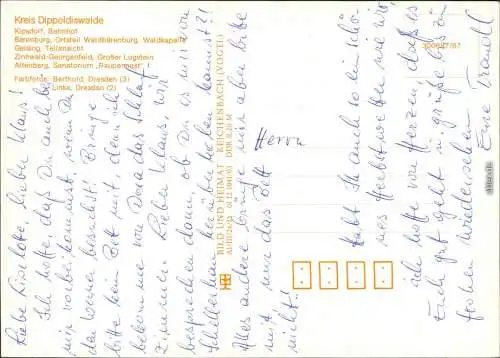 Kreis Dippoldiswalde
Kipsdorf, Bahnhof
Bärenburg, Ortsteil Waldbärenburg, Waldkapelle
Geising, Teilansicht
Zinnwald-Georgenfeld, Großer Lugstein
Altenberg, Sanatorium „Raupennest“
Farbfotos: Berthold, Dresden (3)
Linke, Dresden (2)
BILD UND HEIMAT REICHENBACH (VOGTL)
Liebe Liselotte, lieber Klaus!
Ich hoffe, daß Du auch bei
mir vorbeikommst, wenn Du
den Werner besuchst! Bringe
bitte kein Bett mit, denn ich
bekomme von Dora das Schlaf
Zimmer. Lieber Klaus, wir
besprechen dann, ob Du es mir
Schellerhau herüber holen kannst?!
Alles andere bringe mir aber bitte
mit, nur das Bett
nicht!
Herrn
Habt Ihr auch so ein schö-
nes Herbstwetter wie wir
ich hoffe von Herzen, daß es
Euch gut geht u. grüße bis zum
frohen Wiedersehen
Eure Traudl